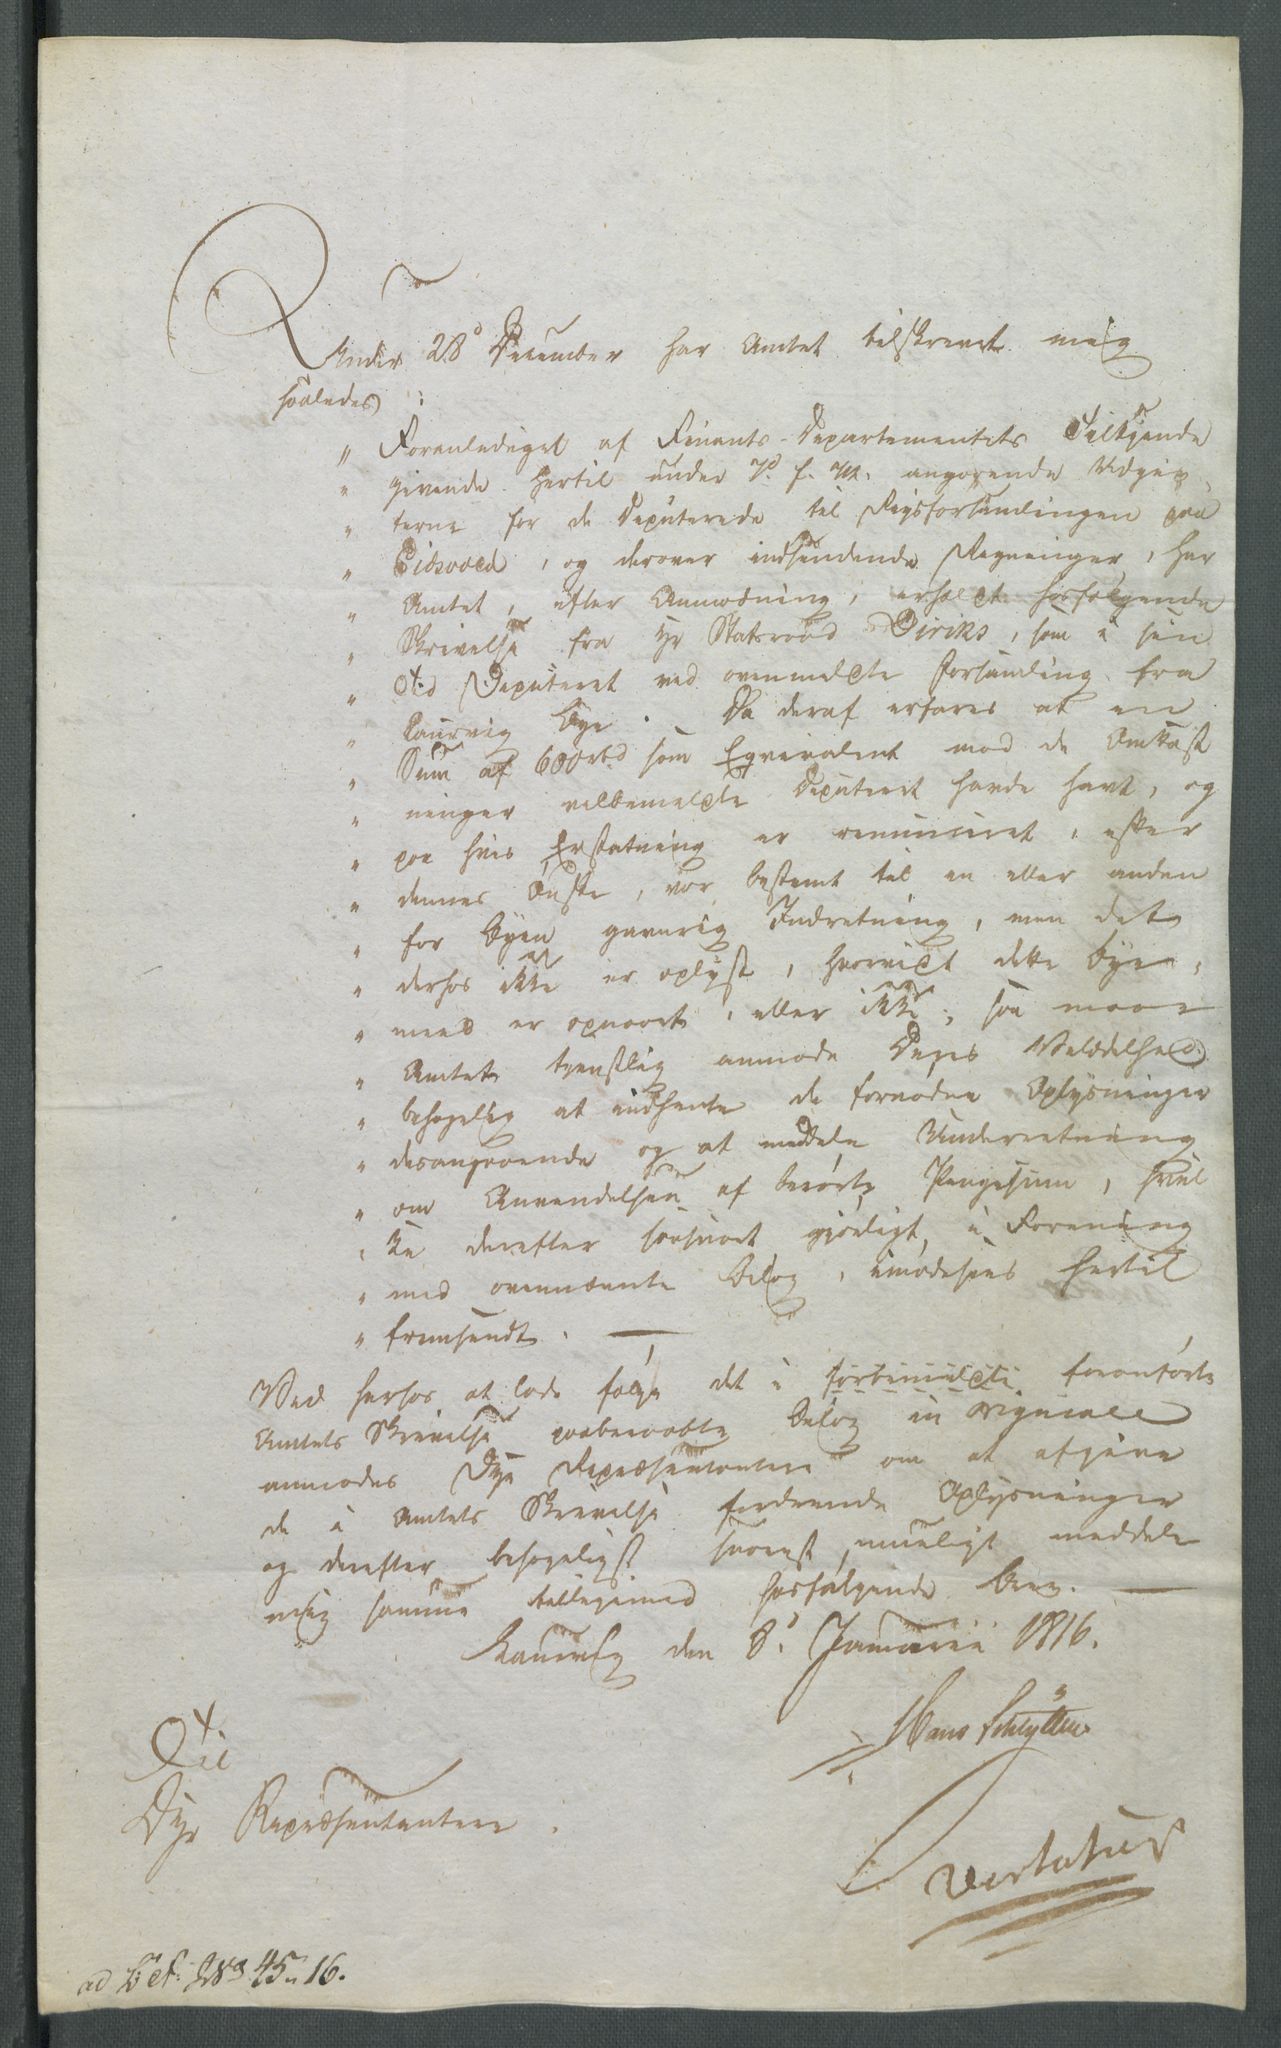 Under 28d December har Amtet tilskrevet mig
saaledes:
" Foranlediget af Finants-Departementets Tilkjende
" givende hertil under 7d f. M. angaaende Udgiv
" terne for de Deputerede til Rigsforsamlingen paa
" Eidsvold, og derover indsendende Regninger, har
" Amtet, efter Anmodning, erholdt hosfølgende
" Skrivelse fra Hr Statsraad Diriks, som i sin
" Tid Deputeret ved ovenmeldte Forsamling fra
" Laurvig Bye. Da deraf erfares at en
" Sum af 600 rbd som Eqvivalent mod de Omkost
" ninger velbemeldte Deputeret havde havt, og
" paa hvis Erstatning er renunceret, efter
" dennes Ønske, var bestemt til en eller anden
" for Byen gavnlig Indretning, men det
" derhos ikke er oplyst, hvorvidt dette Øye-
" med er opnaaet, eller ikke; saa maae
" Amtet tjenstlig anmode Deres Velædelhed
" behagelig at indhente de fornødne Oplysninger
" desangaaende og at meddele Underretning
" om Anvendelsen af berørte Pengesum, hvil
" ke derefter saasnart giørligt, i Forening
" med ovennævnte Bilag, imødesees hertil
" fremsendt. —
Ved herhos at lade følge det i foranførte
Amtets Skrivelse paaberaabte Bilag in originale
anmodes Dhrr Repræsentantere om at afgive
de i Amtets Skrivelse fordrende Oplysninger
og derefter behageligst snarest mueligt meddele
mig samme tilligemed hosfølgende Brev. —
Laurvig den 8d Januarii 1816.
Til
Hans Schlytter
Dhrr Repræsentantere.
vertatur
ad Ref: No 45. 16.